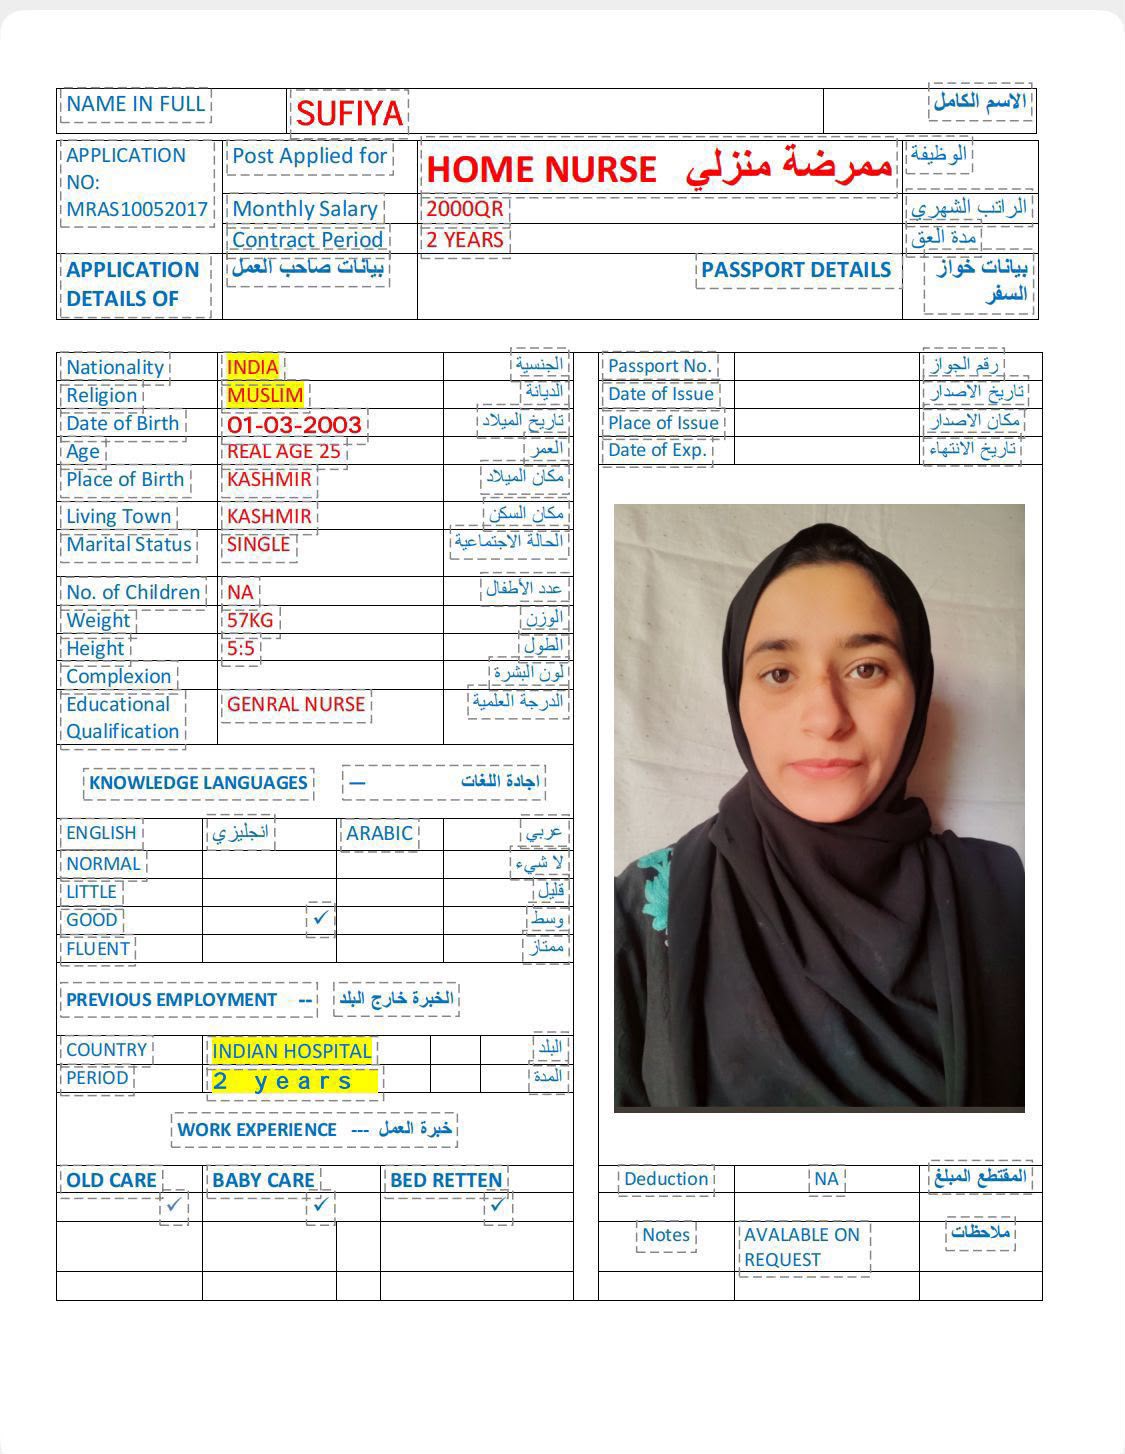 NAME IN FULL SUFIYA الاسم الكامل
APPLICATION NO: MRAS10052017
Post Applied for HOME NURSE ممرضة منزلي الوظيفة
Monthly Salary 2000QR الراتب الشهري
Contract Period 2 YEARS مدة العق
APPLICATION DETAILS OF بيانات صاحب العمل PASSPORT DETAILS بيانات خواز السفر
Nationality INDIA الجنسية
Religion MUSLIM الديانة
Date of Birth 01-03-2003 تاريخ الميلاد
Age REAL AGE 25 العمر
Place of Birth KASHMIR مكان الميلاد
Living Town KASHMIR مكان السكن
Marital Status SINGLE الحالة الاجتماعية
No. of Children NA عدد الأطفال
Weight 57KG الوزن
Height 5:5 الطول
Complexion لون البشرة
Educational Qualification GENRAL NURSE الدرجة العلمية
Passport No. رقم الجواز
Date of Issue تاريخ الاصدار
Place of Issue مكان الاصدار
Date of Exp. تاريخ الانتهاء
KNOWLEDGE LANGUAGES — اجادة اللغات
ENGLISH انجليزي ARABIC عربي
NORMAL لا شيء
LITTLE قليل
GOOD ✓ وسط
FLUENT ممتاز
PREVIOUS EMPLOYMENT -- الخبرة خارج البلد
COUNTRY INDIAN HOSPITAL البلد
PERIOD 2 years المدة
WORK EXPERIENCE --- خبرة العمل
OLD CARE BABY CARE BED RETTEN
✓ ✓ ✓
Deduction NA المقتطع المبلغ
Notes AVALABLE ON REQUEST ملاحظات